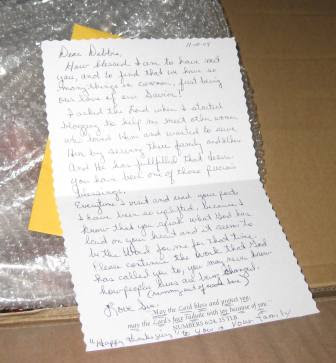 11-18-09
Dear Debbie,
How blessed I am to have met
you, and to find that we have so
many things in common, first being
our love of our Savior!
I asked the Lord when I started
blogging to help me meet other women
who loved Him and wanted to serve
Him by serving their family and others
And He has fulfilled that desire.
You have been one of those precious
blessings.
Everytime I read your posts
I have been so uplifted, because I
know that you speak what God has
laid on your heart and it seems to
be the Word for me for that time.
Please continue the work that God
has called you to, you may never know
how people lives are being changed.
Love
May the Lord bless and protect you;
may the Lord's face radiate with joy because of you.
NUMBERS 6:24, 25 TLB
"Happy Thanksgiving" to You & Your Family